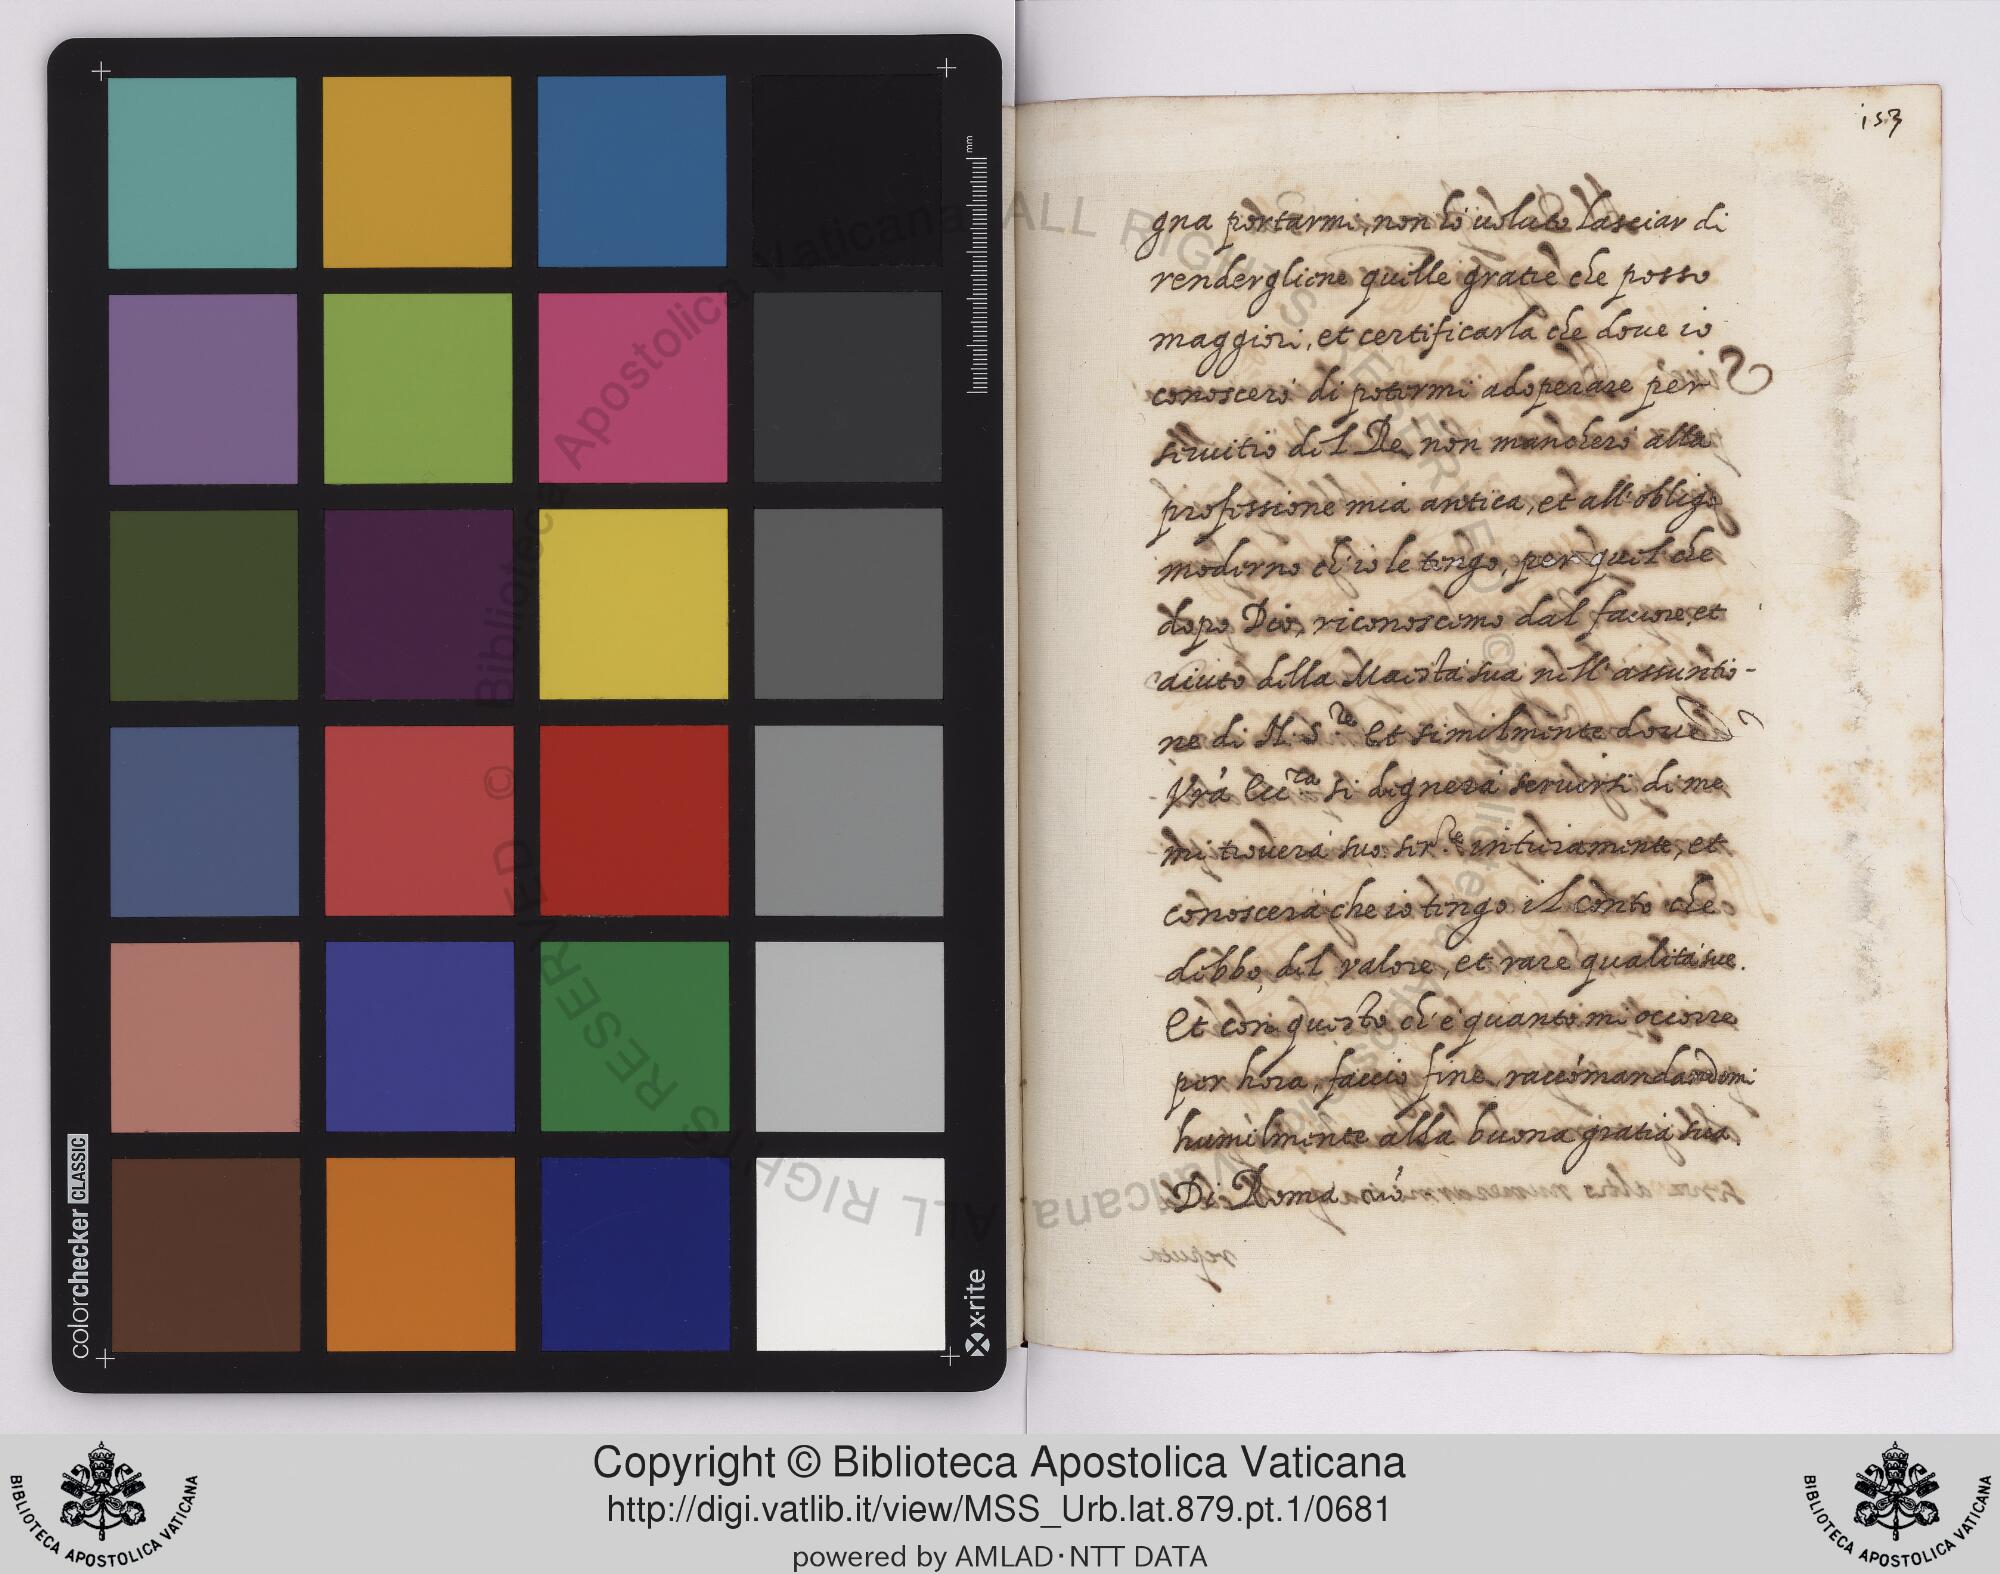 153
gna portarmi, non hò uoluto lasciar di
renderglione quelle gratie che posso
maggiori, et certificarla che doue io
conoscerò di potermi adoperare per
seruitio del Re, non mancherò alla
professione mia antica, et all'obligo
moderno ch'io le tengo, per quel che
dopo Dio, riconoscemo dal fauore, et
aiuto della Maestà sua nell'assuntio-
ne di N. S.re Et similmente doue
Vra Ecc.za si degnerà seruirsi di me
mi trouerà suo ser.re intieramente, et
conoscerà che io tengo il conto che
debbo, del valore, et rare qualità sue.
Et con questo ch'è quanto mi occorre
per hora, faccio fine, raccomandandomi
humilmente alla buona gratia sua.
Di Roma
colorchecker CLASSIC
x-rite
mm
Copyright © Biblioteca Apostolica Vaticana
http://digi.vatlib.it/view/MSS_Urb.lat.879.pt.1/0681
powered by AMLAD·NTT DATA
BIBLIOTECA APOSTOLICA VATICANA
BIBLIOTECA APOSTOLICA VATICANA
© Biblioteca Apostolica Vaticana ALL RIGHTS RESERVED
© Biblioteca Apostolica Vaticana ALL RIGHTS RESERVED